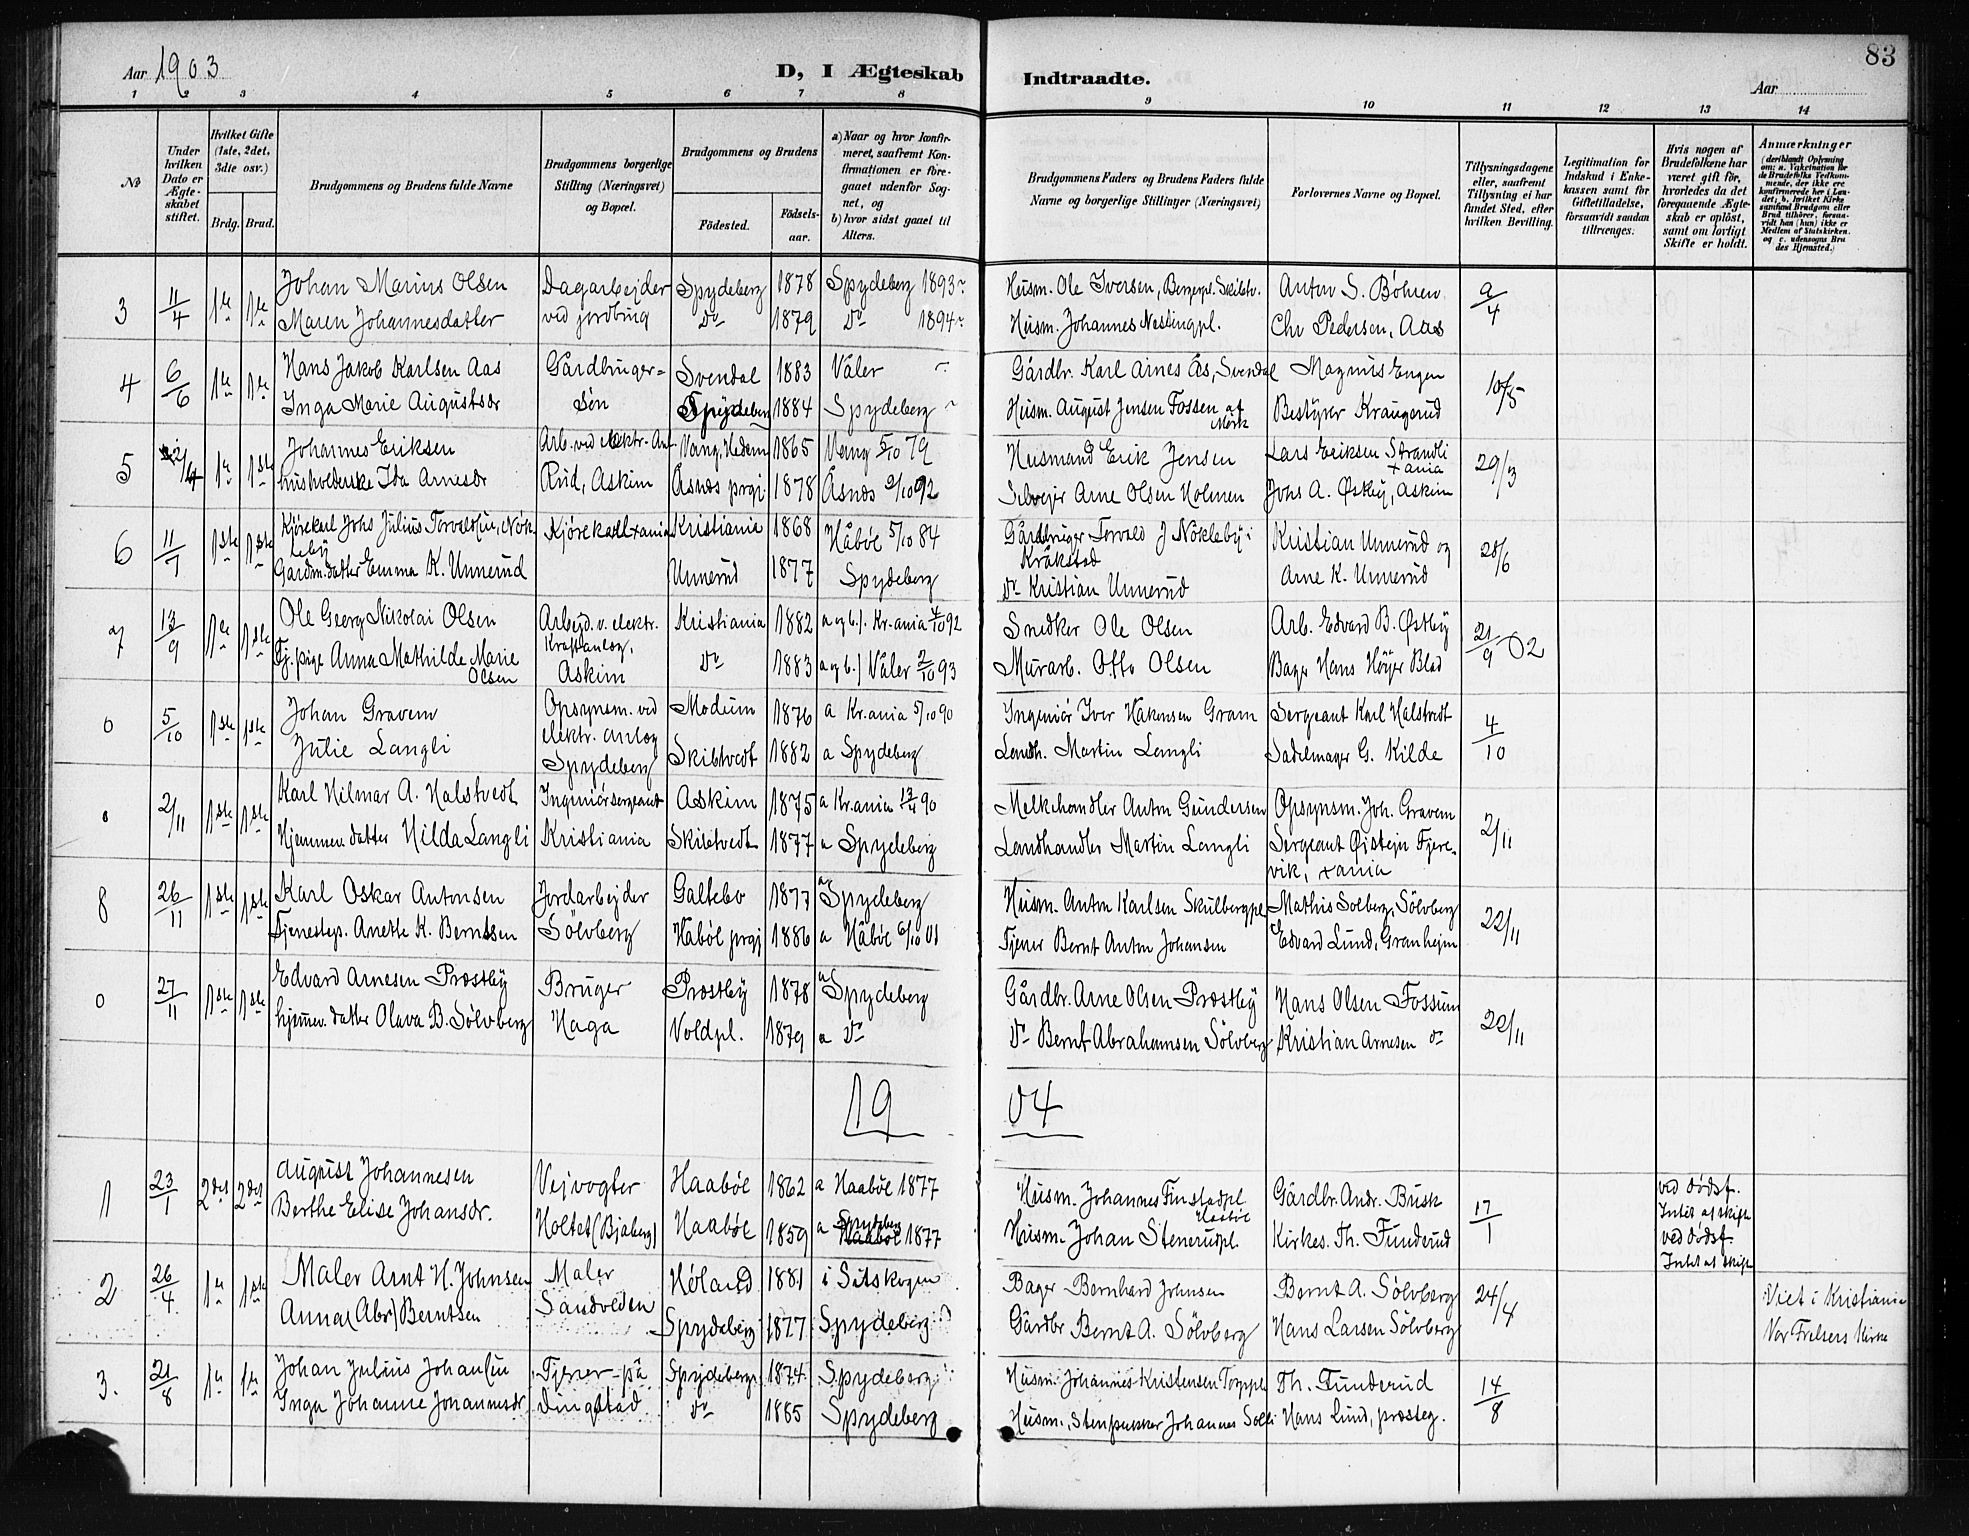 83
Aar 1903
D, I Ægteskab Indtraadte.
Aar
1 2 3 4 5 6 7 8 9 10 11 12 13 14
No
Under hvilken Dato er Ægteskabet stiftet.
Hvilket Gifte (1ste, 2det, 3die osv.)
Brdg. Brud.
Brudgommens og Brudens fulde Navne
Brudgommens borgerlige Stilling (Næringsvei) og Bopæl.
Brudgommens og Brudens
Fødested.
Fødselsaar.
a) Naar og hvor konfirmeret, saafremt Konfirmationen er foregaaet udenfor Sognet, og
b) hvor sidst gaaet til Alters.
Brudgommens Faders og Brudens Faders fulde Navne og borgerlige Stillinger (Næringsvei)
Forlovernes Navne og Bopæl.
Tillysningsdagene eller, saafremt Tillysning ei har fundet Sted, efter hvilken Bevilling.
Legitimation for Indskud i Enkekassen samt for Giftetilladelse, forsaavidt saadan tiltrænges.
Hvis nogen af Brudefolkene har været gift før, hvorledes da det foregaaende Ægteskab er opløst, samt om lovligt Skifte er holdt.
Anmærkninger
(deriblandt Oplysning om: a. Vakcination for de Brudefolks Vedkommende, der ikke ere konfirmerede her i Landet; b. hvilket Kirkesamfund Brudgom eller Brud tilhører, forsaavidt han (hun) ikke er Medlem af Statskirken. og c. udensogns Brudes Hjemsted.)
3 11/4 1ste 1ste Johan Marius Olsen Dagarbejder Spydeberg 1878 Spydeberg 1893 Husm. Ole Iversen, Anton S. Böhren 9/4
Maren Johannesdatter ved jordbrug Do 1879 Do 1894 Husm. Johannes Nestingpl. Chr Pedersen, Aas
4 6/6 1ste 1ste Hans Jakob Karlsen Aas Gårdbruger- Svendal 1883 Våler Gårdbr. Karl Arnes Ås, Svendal Magnus Engen 10/5
Inga Marie Augustsdr søn Spydeberg 1884 Spydeberg Husm. August Jensen Fossen af Mörk Bestyrer Kraugerud
5 1ste 1ste Johannes Eriksen Arb. ved elektr. An Vang, Hedem 1865 Vang 5/10 79 Husmand Erik Jensen Lars Eriksen Strandli xania 29/3
husholderske Ida Arnesdr Rud, Askim Åsnæs prgj 1878 Åsnæs 2/10 92 Selvejer Arne Olsen Holmen Johs A. Østby, Askim
6 11/7 1ste 1ste Kjörekarl Johs Julius Torvaldsen, Nökleby Kjörekarl xania Kristiania 1868 Håböl 5/10 84 Gårdbruger Torvald J Nökleby i Kråkstad Kristian Unnerud og 28/6
Gardm. datter Emma K. Unnerud Unnerud 1877 Spydeberg Do Kristian Unnerud Arne K. Unnerud
7 13/9 1ste 1ste Ole Georg Nikolai Olsen Arbejd. v. elektr. Kristiania 1882 a og b). Kr.ania 4/10 92 Snedker Ole Olsen Arb. Edvard B. Østby 21/9 02
Tj. pige Anna Mathilde Marie Olsen Kraftanlæg, Askim Do 1883 a og b.) Våler 2/10 93 Murarb. Otto Olsen Bager Hans Höyer Blad
0 5/10 1ste 1ste Johan Gravem Opsynsm. ved Modum 1876 a Kr.ania 5/10 90 Ingeniör Iver Håkonsen Gram Sergeant Karl Halstvedt 4/10
Julie Langli elektr. anlæg Spydeberg Skibtvedt 1882 a Spydeberg Landh. Martin Langli Sadelmager G. Kilde
2/11 1ste 1ste Karl Hilmar A. Halstvedt Ingeniörsergeant Askim 1875 a Kr.ania 13/4 90 Melkehandler Anton Gundersen Opsynsm. Joh. Gravem 2/11
Hjemmev. datter Hilda Langli Kristiania Skibtvedt 1877 a Spydeberg Landhandler Martin Langli Sergeant Øistejn Fjerevik, xania
8 26/11 1ste 1ste Karl Oskar Antonsen Jordarbejder Galtebo 1877 a Spydeberg Husm. Anton Karlsen Skulbergpl Mathis Solberg, Sölvberg 22/11
Tjenestep. Anette K. Berntsen Sölvberg Håböl prgj 1886 a Håböl 6/10 01 Tjener Bernt Anton Johansen Edvard Lund, Granhejm
0 27/11 1ste 1ste Edvard Arnesen Præstby Bruger Præstby 1878 a Spydeberg Gårdbr. Arne Olsen Præstby Hans Olsen Fossum 22/11
hjemmev. datter Olava B. Sölvberg Haga Voldpl. 1879 a Do Do Bernt Abrahamsen Sölvberg Kristian Arnesen Do
19 04
1 23/1 2det 2det August Johannesen Vejvogter Haaböl 1862 a Haaböl 1877 Husm. Johannes Finstadpl Haaböl Gårdbr. Andr. Busk 17/1 ved dödsf. Intet at skifte
Berthe Elise Johansdr. Holtet (Bjaberg) Haaböl 1859 a Spydeberg 1877 Husm. Johan Stenerudpl. Kirkes. Th. Funderud ved dödsf. Intet at skifte
2 26/4 1ste 1ste Maler Arnt H. Johnsen Maler Höland 1881 i Setskogen Bager Bernhard Johnsen Bernt A. Sölvberg 24/4 Viet i Kristiania
Anna (Abr) Berntsen Sandveden Spydeberg 1877 Spydeberg Gårdbr Bernt A. Sölvberg Hans Larsen Sölvberg Vor Frelsers Kirke
3. 21/8 1ste 1ste Johan Julius Johansen Tjener på Spydeberg 1874 Spydeberg Husm. Johannes Kristensen Torppl Th. Funderud 14/8
Inga Johanne Johannesdr Dingstad Do 1885 Spydeberg Husm., Stenpukker Johannes Solli Hans Lund, præsteg.